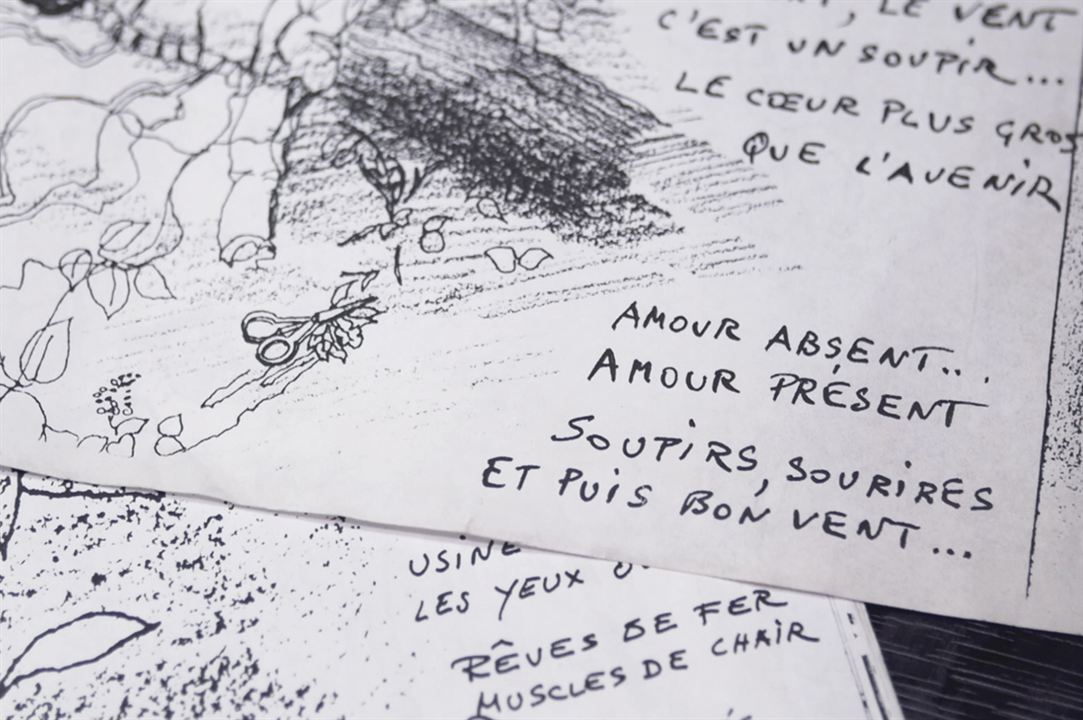 , LE VENT
C'EST UN SOUPIR...
LE CŒUR PLUS GROS
QUE L'AVENIR
AMOUR ABSENT...
AMOUR PRÉSENT
SOUPIRS, SOURIRES
ET PUIS BON VENT...
USINE
LES YEUX
RÊVES DE FER
MUSCLES DE CHAIR